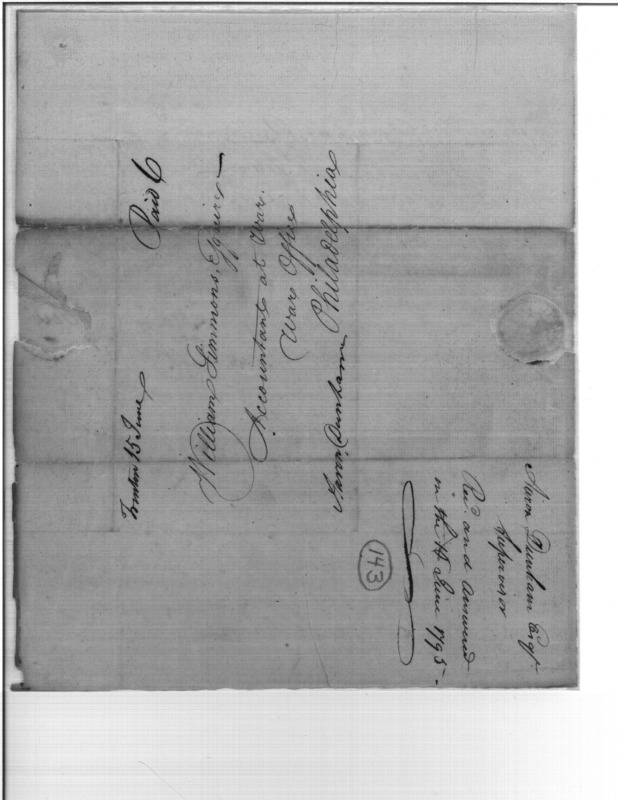 Trenton 15 June
Paid 6
William Simmons, Esquire
Accountant at War.
War Office
Philadelphia
Aaron Dunham
Aaron Dunham Esqr
Supervisor
Recd. and Answered
in the June 1795.
143